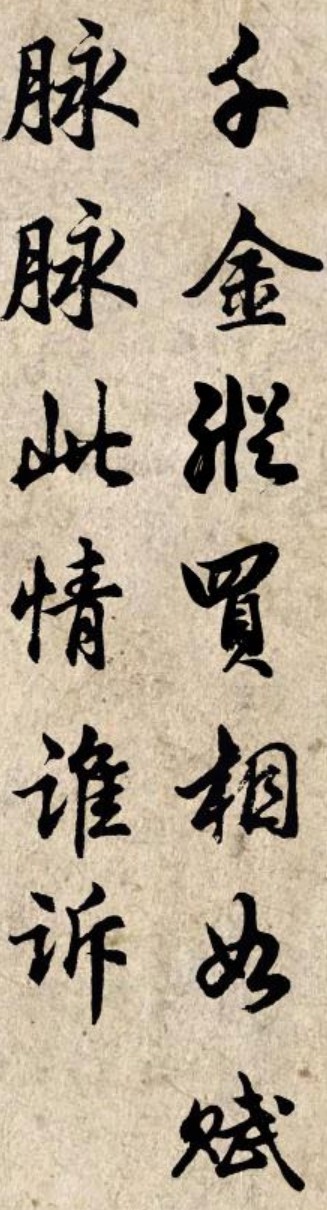 千金縱買相如賦
脉脉此情誰訴